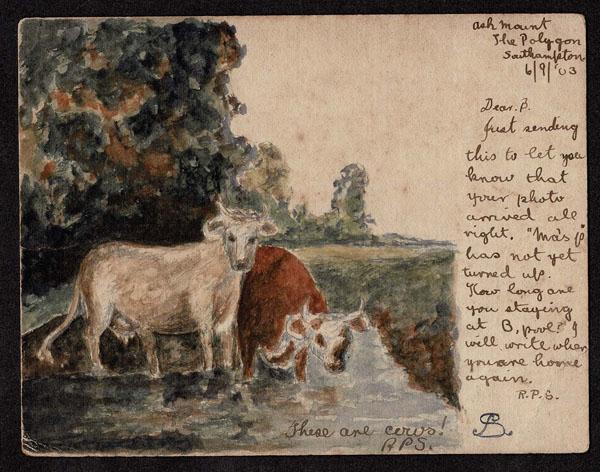 Ash Mount
The Polygon
Southampton
6/9/03
Dear. B.
Just sending
this to let you
know that
your photo
arrived all
right. "Ma's p"
has not yet
turned up.
How long are
you staying
at B, pool? I
will write when
you are home
again.
R.P.S.
These are cows!
RPS.